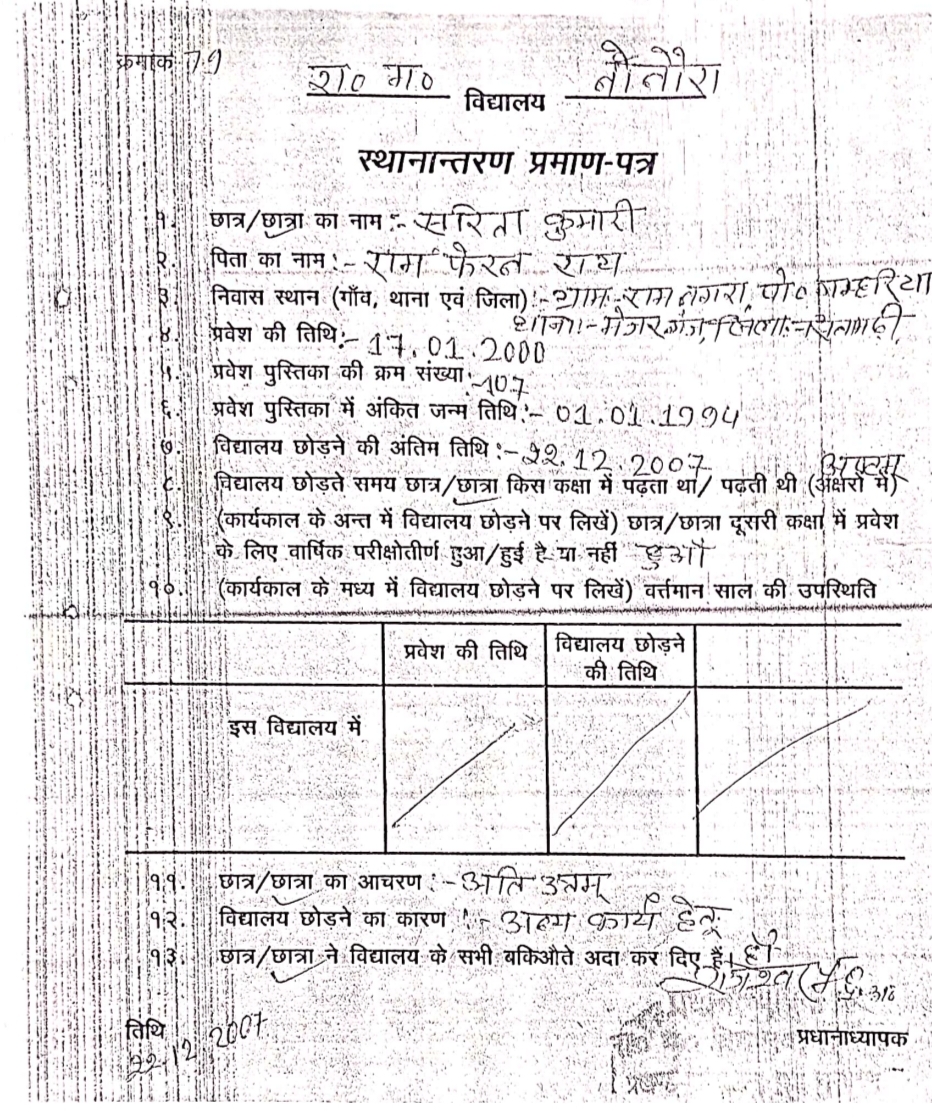 क्रमांक 79
रा० म० विद्यालय नौनौरा
स्थानान्तरण प्रमाण-पत्र
१. छात्र/छात्रा का नाम :- सरिता कुमारी
२. पिता का नाम :- राम फेरन राय
३. निवास स्थान (गाँव, थाना एवं जिला) :- ग्राम - राम नगरा, पो०
थाना :- मेजरगंज, जिला :-
४. प्रवेश की तिथि :- 17.01.2000
५. प्रवेश पुस्तिका की क्रम संख्या :- 107
६. प्रवेश पुस्तिका में अंकित जन्म तिथि :- 01.01.1994
७. विद्यालय छोड़ने की अंतिम तिथि :- 22.12.2007
८. विद्यालय छोड़ते समय छात्र/छात्रा किस कक्षा में पढ़ता था/ पढ़ती थी (अक्षरों में) अष्टम
९. (कार्यकाल के अन्त में विद्यालय छोड़ने पर लिखें) छात्र/छात्रा दूसरी कक्षा में प्रवेश
के लिए वार्षिक परीक्षोतीर्ण हुआ/हुई है या नहीं
१०. (कार्यकाल के मध्य में विद्यालय छोड़ने पर लिखें) वर्त्तमान साल की उपस्थिति
प्रवेश की तिथि
विद्यालय छोड़ने
की तिथि
इस विद्यालय में
११. छात्र/छात्रा का आचरण :- अति उत्तम्
१२. विद्यालय छोड़ने का कारण :- अन्य कार्य हेतू
१३. छात्र/छात्रा ने विद्यालय के सभी बकिऔते अदा कर दिए हैं। हाँ
तिथि
22.12.2007
प्रधानाध्यापक